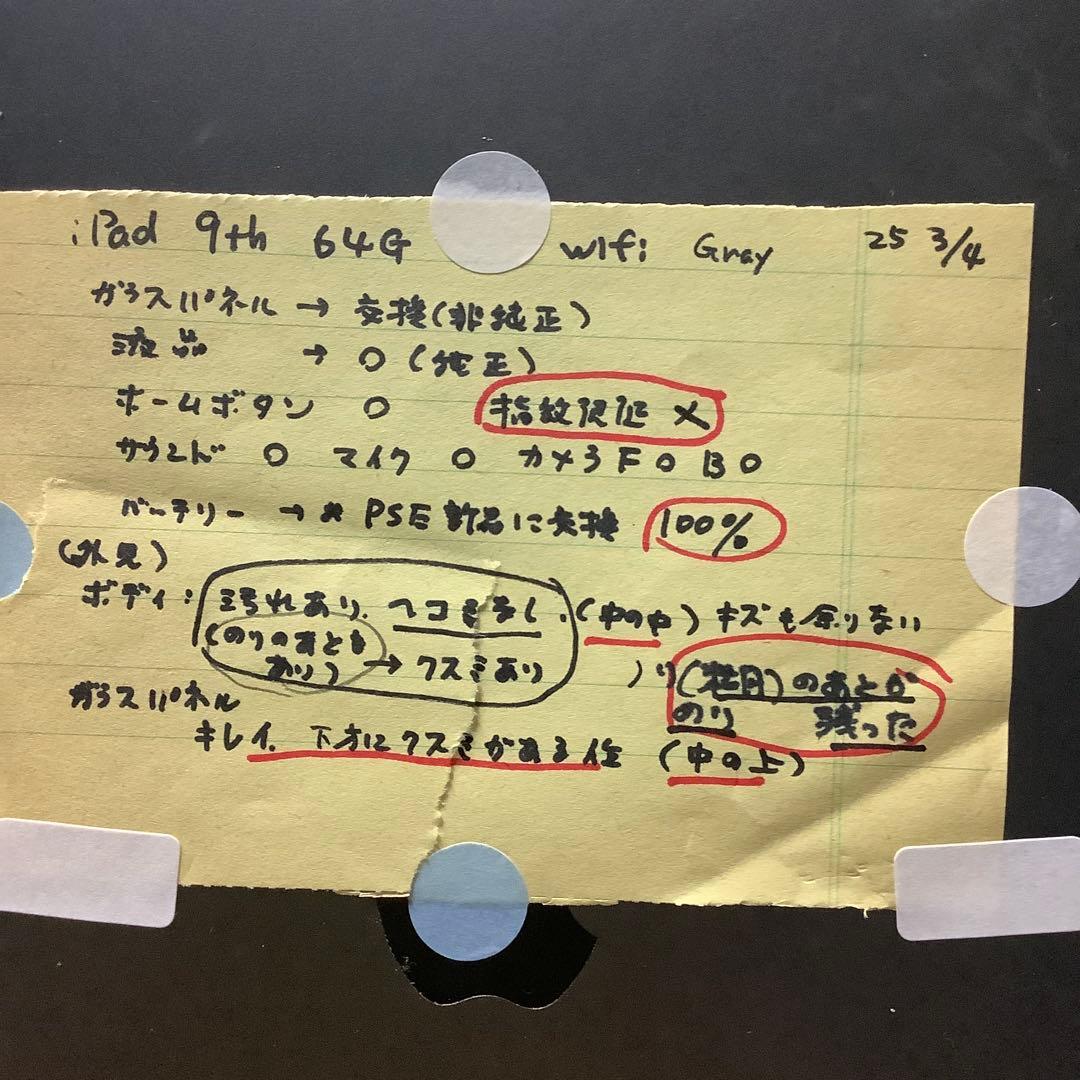 iPad 9th 64G wifi Gray 25 3/4
ガラスパネル → 交換(非純正)
液晶 → ○ (純正)
ホームボタン ○ 指紋認証 ×
サウンド ○ マイク ○ カメラ F ○ B ○
バッテリー → PSE 新品に交換 100%
(外見)
ボディ: 汚れあり、ヘコミなし、(中の中) キズも余りない
(のりのあともあり) → クスミあり
のあとが
のり 残った
ガラスパネル
キレイ、下方にクスミがある位 (中の上)